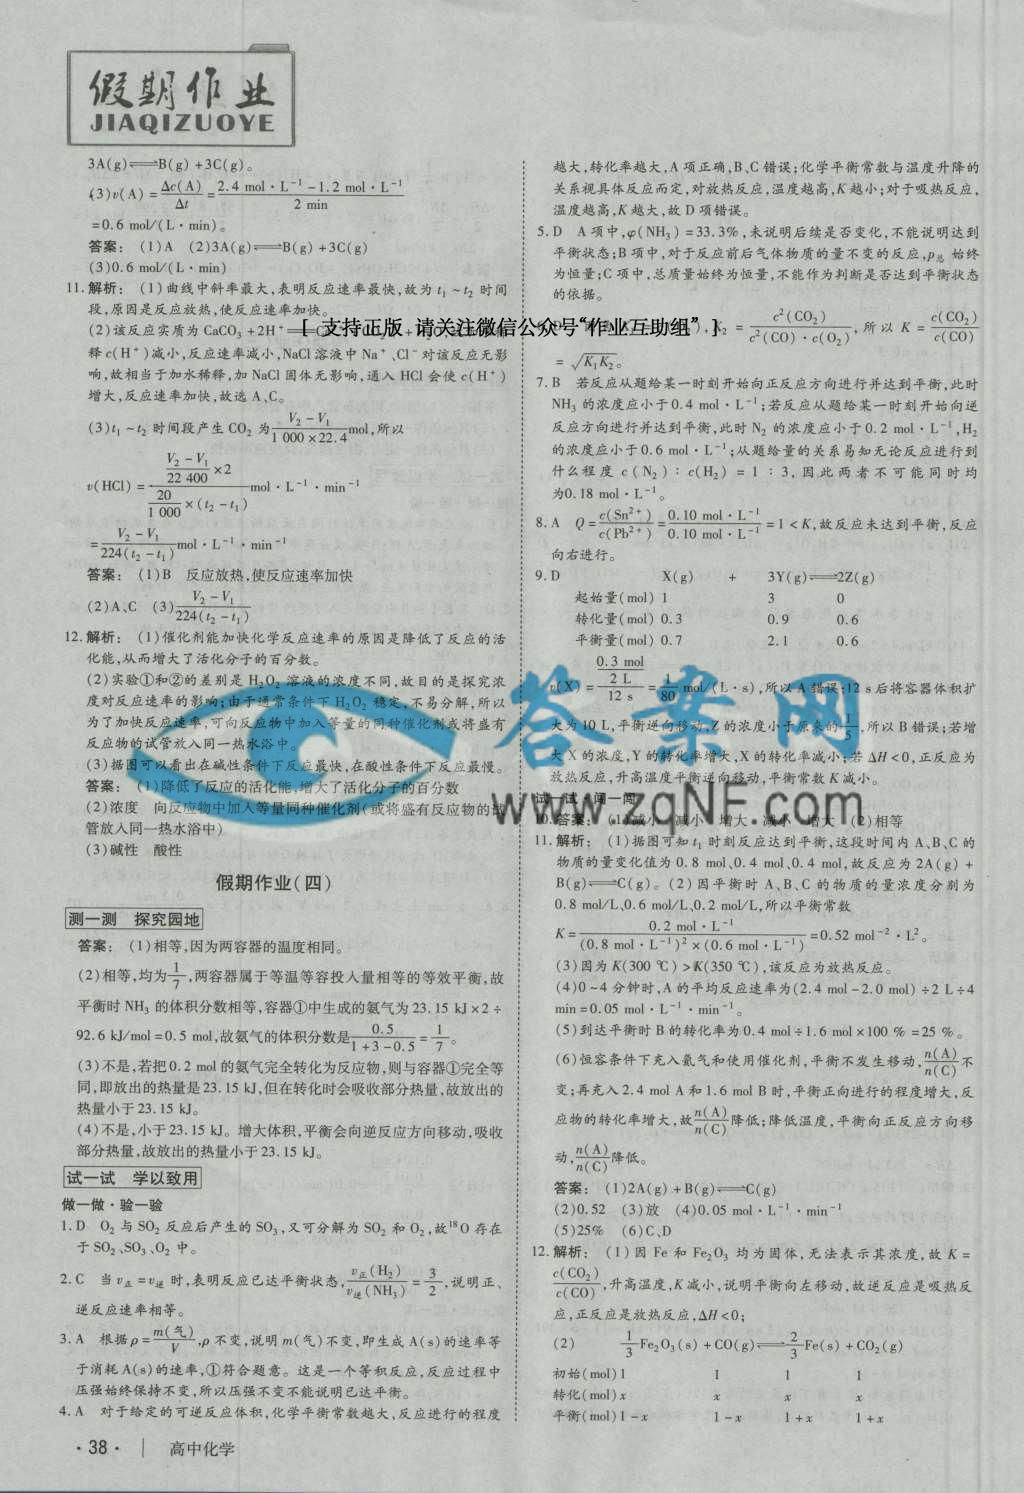 假期作业
JIAQIZUOYE
3A(g)⇌B(g)+3C(g)。
(3)v(A)=Δc(A)/Δt=(2.4 mol·L⁻¹-1.2 mol·L⁻¹)/2 min
=0.6 mol/(L·min)。
答案：(1)A (2)3A(g)⇌B(g)+3C(g)
(3)0.6 mol/(L·min)
11.解析：(1)曲线中斜率最大,表明反应速率最快,故为t₁~t₂时间
段,原因是反应放热,使反应速率加快。
(2)该反应实质为CaCO₃+2H⁺
[ 支持正版 请关注微信公众号“作业互助组” ]
释c(H⁺)减小,反应速率减小,NaCl溶液中Na⁺、Cl⁻对该反应无影
响,故相当于加水稀释,加NaCl固体无影响,通入HCl会使c(H⁺)
增大,反应速率加快,故选A、C。
(3)t₁~t₂时间段产生CO₂为(V₂-V₁)/(1 000×22.4)mol,所以
v(HCl)=((V₂-V₁)/22 400×2)/(20/1 000×(t₂-t₁))mol·L⁻¹·min⁻¹
=(V₂-V₁)/224(t₂-t₁)mol·L⁻¹·min⁻¹
答案：(1)B 反应放热,使反应速率加快
(2)A、C (3)(V₂-V₁)/224(t₂-t₁)
12.解析：(1)催化剂能加快化学反应速率的原因是降低了反应的活
化能,从而增大了活化分子的百分数。
(2)实验①和②的差别是H₂O₂溶液的浓度不同,故目的是探究浓
度对反应速率的影响;由于通常条件下H₂O₂稳定,不易分解,所以
为了加快反应速率,可向反应物中加入等量的同种催化剂或将盛有
反应物的试管放入同一热水浴中。
(3)据图可以看出在碱性条件下反应最快,在酸性条件下反应最慢。
答案：(1)降低了反应的活化能,增大了活化分子的百分数
(2)浓度 向反应物中加入等量同种催化剂(或将盛有反应物的试
管放入同一热水浴中)
(3)碱性 酸性
假期作业(四)
测一测 探究园地
答案：(1)相等,因为两容器的温度相同。
(2)相等,均为1/7,两容器属于等温等容投入量相等的等效平衡,故
平衡时NH₃的体积分数相等,容器①中生成的氨气为23.15 kJ×2÷
92.6 kJ/mol=0.5 mol,故氨气的体积分数是0.5/(1+3-0.5)=1/7。
(3)不是,若把0.2 mol的氨气完全转化为反应物,则与容器①完全等
同,即放出的热量是23.15 kJ,但在转化时会吸收部分热量,故放出的
热量小于23.15 kJ。
(4)不是,小于23.15 kJ。增大体积,平衡会向逆反应方向移动,吸收
部分热量,故放出的热量小于23.15 kJ。
试一试 学以致用
做一做·验一验
1.D O₂与SO₂反应后产生的SO₃,又可分解为SO₂和O₂,故¹⁸O存在
于SO₂、SO₃、O₂中。
2.C 当v正=v逆时,表明反应已达平衡状态,v正(H₂)/v逆(NH₃)=3/2,说明正、
逆反应速率相等。
3.A 根据ρ=m(气)/V,ρ不变,说明m(气)不变,即生成A(s)的速率等
于消耗A(s)的速率,①符合题意。这是一个等积反应,反应过程中
压强始终保持不变,所以压强不变不能说明已达平衡。
4.A 对于给定的可逆反应体积,化学平衡常数越大,反应进行的程度
·38· | 高中化学
越大,转化率越大,A项正确,B、C错误;化学平衡常数与温度升降的
关系视具体反应而定,对放热反应,温度越高,K越小;对于吸热反应,
温度越高,K越大,故D项错误。
5.D A项中,φ(NH₃)=33.3%,未说明后续是否变化,不能说明达到
平衡状态;B项中,对于反应前后气体物质的量不变的反应,p总始终
为恒量;C项中,总质量始终为恒量,不能作为判断是否达到平衡状态
的依据。
K₂=c²(CO₂)/(c²(CO)·c(O₂)),所以K=c(CO₂)/c(CO)
=√(K₁K₂)。
7.B 若反应从题给某一时刻开始向正反应方向进行并达到平衡,此时
NH₃的浓度应小于0.4 mol·L⁻¹;若反应从题给某一时刻开始向逆
反应方向进行并达到平衡,此时N₂的浓度应小于0.2 mol·L⁻¹,H₂
的浓度应小于0.6 mol·L⁻¹;从题给量的关系易知无论反应进行到
什么程度c(N₂)∶c(H₂)=1∶3,因此两者不可能同时均
为0.18 mol·L⁻¹。
8.A Q=c(Sn²⁺)/c(Pb²⁺)=0.10 mol·L⁻¹/0.10 mol·L⁻¹=1<K,故反应未达到平衡,反应
向右进行。
9.D X(g) + 3Y(g)⇌2Z(g)
起始量(mol) 1 3 0
转化量(mol) 0.3 0.9 0.6
平衡量(mol) 0.7 2.1 0.6
v(X)=(0.3 mol/2 L)/12 s=1/80 mol/(L·s),所以A错误;12 s后将容器体积扩
大为10 L,平衡逆向移动,Z的浓度小于原来的1/5,所以B错误;若增
大X的浓度,Y的转化率增大,X的转化率减小;若ΔH<0,正反应为
放热反应,升高温度平衡逆向移动,平衡常数K减小。
试一试·闯一闯
10.答案：(1)减小 减小 增大 减小 增大 (2)相等
11.解析：(1)据图可知t₁时刻反应达到平衡,这段时间内A、B、C的
物质的量变化值为0.8 mol、0.4 mol、0.4 mol,故反应为2A(g)+
B(g)⇌C(g)。(2)因平衡时A、B、C的物质的量浓度分别为
0.8 mol/L、0.6 mol/L、0.2 mol/L,所以平衡常数
K=0.2 mol·L⁻¹/((0.8 mol·L⁻¹)²×(0.6 mol·L⁻¹))=0.52 mol⁻²·L²。
(3)因为K(300 ℃)>K(350 ℃),该反应为放热反应。
(4)0~4分钟时,A的平均反应速率为(2.4 mol-2.0 mol)÷2 L÷4
min=0.05 mol·L⁻¹·min⁻¹。
(5)到达平衡时B的转化率为0.4 mol÷1.6 mol×100 %=25 %。
(6)恒容条件下充入氩气和使用催化剂,平衡不发生移动,n(A)/n(C)不
变;再充入2.4 mol A和1.6 mol B时,平衡正向进行的程度增大,反
应物的转化率增大,故n(A)/n(C)降低;降低温度,平衡向正反应方向移
动,n(A)/n(C)降低。
答案：(1)2A(g)+B(g)⇌C(g)
(2)0.52 (3)放 (4)0.05 mol·L⁻¹·min⁻¹
(5)25% (6)C、D
12.解析：(1)因Fe和Fe₂O₃均为固体,无法表示其浓度,故K=
c(CO₂)/c(CO),升高温度,K减小,说明平衡向左移动,故逆反应是吸热反
应,正反应是放热反应,ΔH<0;
(2) 1/3Fe₂O₃(s)+CO(g)⇌2/3Fe(s)+CO₂(g)
初始(mol)1 1 1 1
转化(mol)x x x x
平衡(mol)1-x 1-x 1+x 1+x
答案网
www.zqNF.com